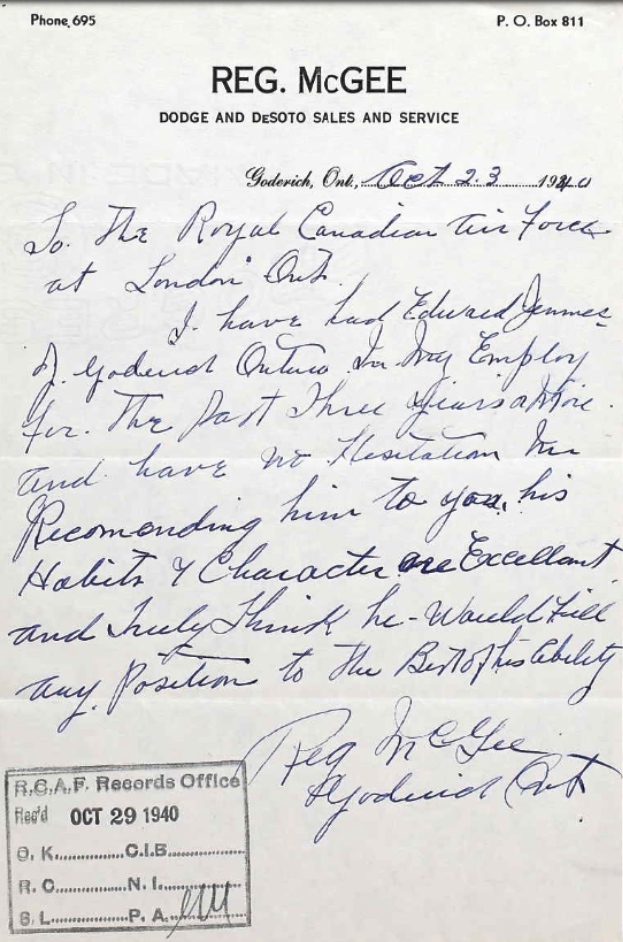 Phone, 695
P. O. Box 811
REG. McGEE
DODGE AND DeSOTO SALES AND SERVICE
Goderich, Ont., Oct 23 1940
To. The Royal Canadian Air Force
at London Ont.
I. have had Edward Jennes
of Goderich Ontario In My Employ
for. The Past Three Years
and have no Hesitation In
Recomending him to you, his
Habits & Character are Excellant
and Truly Think he - Would Fill
any. Position to The Best of his Ability
Reg McGee
Goderich Ont
R.C.A.F. Records Office
Rec'd OCT 29 1940
O. K. C.I.B.
R. C. N. I.
S. L. P. A.